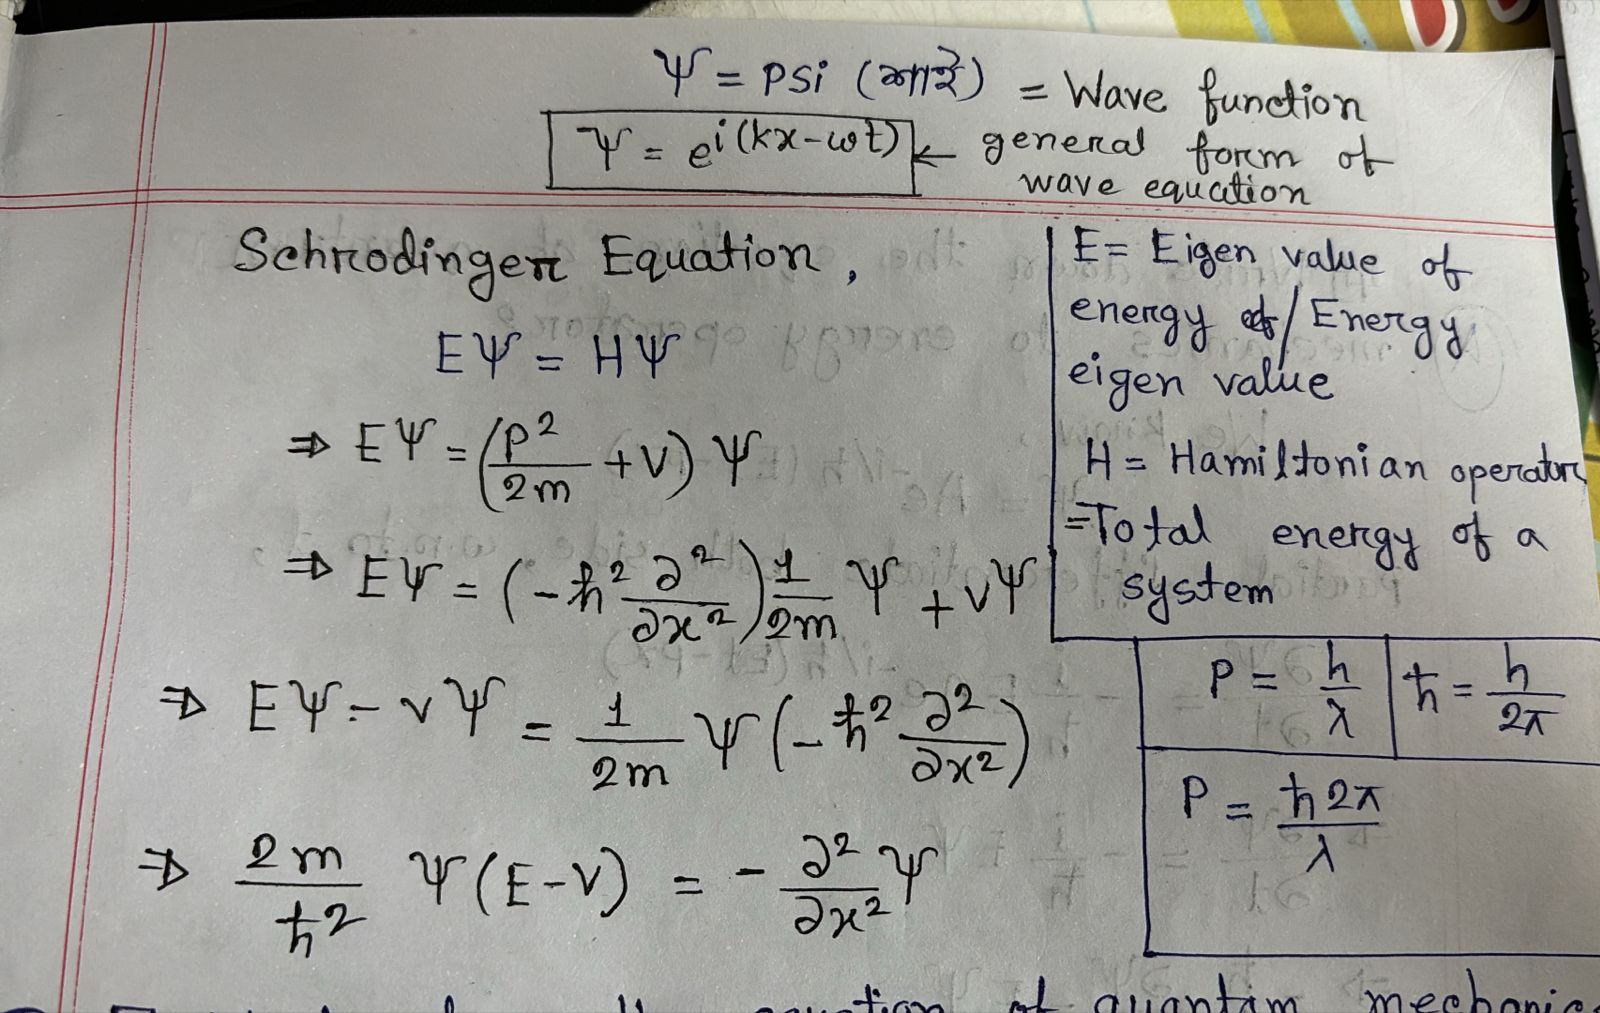 Ψ = Psi (সাই) = Wave function
Ψ = e^{i(kx-ωt)} ← general form of
wave equation
Schrodinger Equation,
EΨ = HΨ
⇒ EΨ = (P²/2m + V) Ψ
⇒ EΨ = (-ħ² ∂²/∂x²) 1/2m Ψ + VΨ
⇒ EΨ - VΨ = 1/2m Ψ (-ħ² ∂²/∂x²)
⇒ 2m/ħ² Ψ (E-V) = - ∂²/∂x² Ψ
E = Eigen value of
energy / Energy
eigen value
H = Hamiltonian operator
= Total energy of a
system
P = h/λ
ħ = h/2π
P = ħ2π/λ
of quantam mechanics